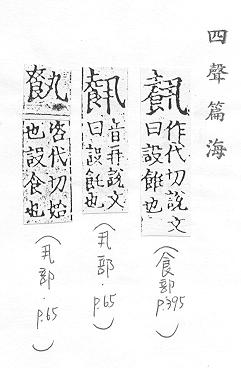 四聲篇海
作代切說文
曰設飪也
(食部
p.395)
音再說文
曰設飪也
(丮部．p.65)
咨代切始
也設食也
(丮部．p.65)